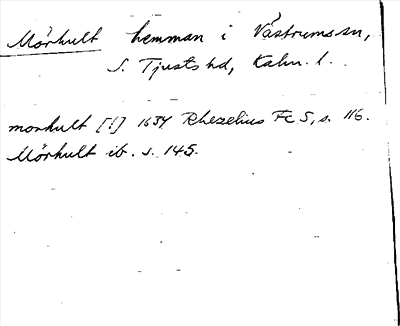 Mörhult hemman i Västrums sn,
S. Tjusts hd, Kalm. l.
morhult [!] 1634 Rhezelius Fc 5, s. 116.
Mörhult ib. s. 145.